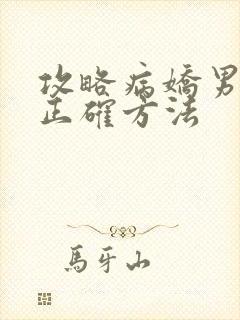 攻略病嬌男
正確方法
馬牙山